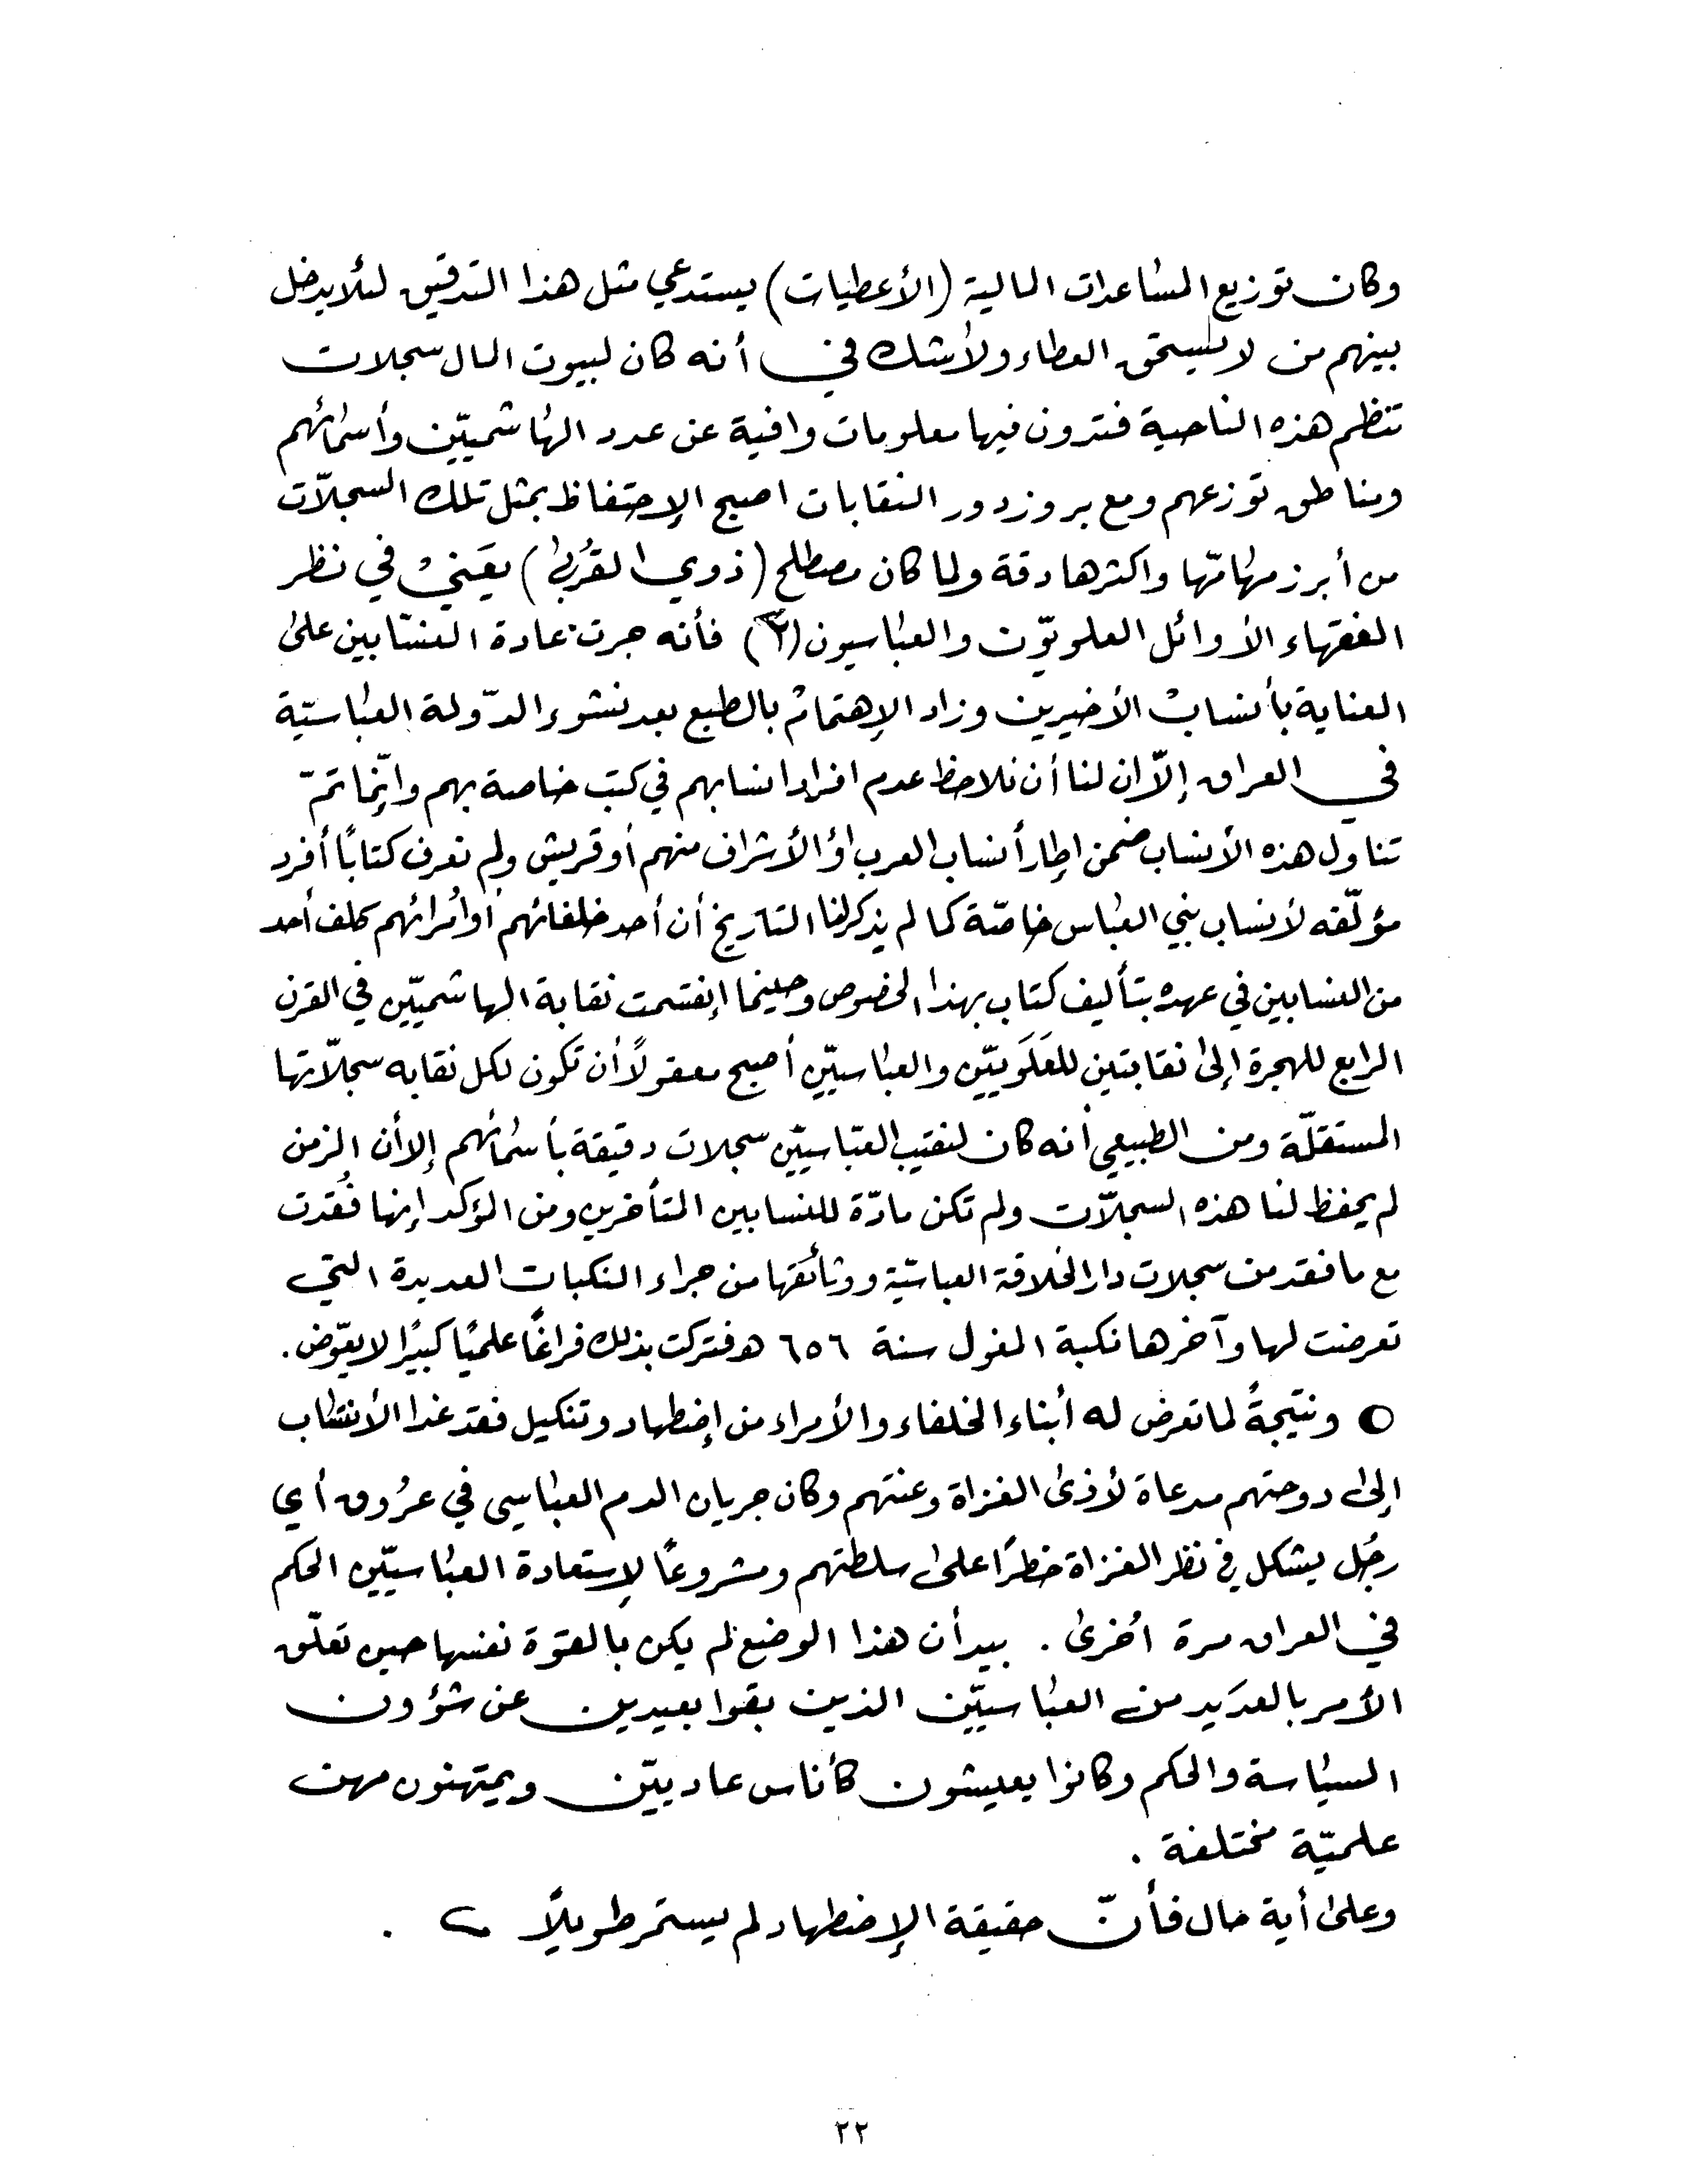 وكان توزيع المساعدات المالية (الأعطيات) يستدعي مثل هذا التدقيق لئلا يدخل
بينهم من لا يستحق العطاء ولا شك في أنه كان لبيوت المال سجلات
تنظم هذه الناحية فتدون فيها معلومات وافية عن عدد الهاشميّين وأسمائهم
ومناطق توزعهم ومع بروز دور النقابات اصبح الإحتفاظ بمثل تلك السجلّات
من أبرز مهامّها واكثرها دقة ولما كان مصطلح (ذوي القُربىٰ) يعَني في نظر
الفقهاء الأوائل العلويّون والعباسيون (٢) فأنه جرت عادة النسّابين علىٰ
العناية بأنساب الأخيرين وزاد الإهتمام بالطبع بعد نشوء الدّولة العباسيّة
في العراق إلّا ان لنا أن نلاحظ عدم افراد انسابهم في كتب خاصة بهم وانّما تمّ
تناول هذه الأنساب ضمن اطار أنساب العرب اؤ الأشراف منهم أو قريش ولم نعرف كتابًا أفرد
مؤلّفه لأنساب بني العباس خاصّة كما لم يذكر لنا التاريخ أن أحد خلفائهم أو اُمرائهم كلف أحد
من النسابين في عهده بتأليف كتاب بهذا الخصوص وحينما إنقسمت نقابة الهاشميّين في القرن
الرابع للهجرة إلىٰ نقابتين للعَلَويّين والعباسيّين أصبح معقولًا أن تكون لكل نقابه سجلّاتها
المستقلّة ومن الطبيعي أنه كان لنقيب العبّاسيّين سجلات دقيقة بأسمائهم إلا أن الزمن
لم يحفظ لنا هذه السجلّات ولم تكن مادّة للنسابين المتأخرين ومن المؤكد إنها فُقدت
مع ما فقد من سجلات دار الخلافة العباسيّة ووثائقها من جراء النكبات العديدة التي
تعرضت لها وآخرها نكبة المغول سنة ٦٥٦ هـ فتركت بذلك فراغًا علميًا كبيرًا لا يعوّض.
○ ونتيجةً لما تعرض له أبناء الخلفاء والأمراء من إضطهاد وتنكيل فقد غدا الأنتساب
إلىٰ دوحتهم مدعاة لأذىٰ الغزاة وعنتهم وكان جريان الدم العباسي في عرُوق أي
رجُل يشكل في نظر الغزاة خطرًا علىٰ سلطتهم ومشروعًا لإستعادة العباسيّين الحكم
في العراق مرة اُخرىٰ . بيد أن هذا الوضع لم يكن بالقوة نفسها حين تعلّق
الأمر بالعدَيد من العباسيّين الذين بقوا بعيدين عن شؤون
السياسة والحكم وكانوا يعيشون كأناس عاديّين ويمتهنون مهن
علميّة مختلفة .
وعلىٰ أية حال فأنّ حقيقة الإضطهاد لم يستمر طويلًا .
٢٢